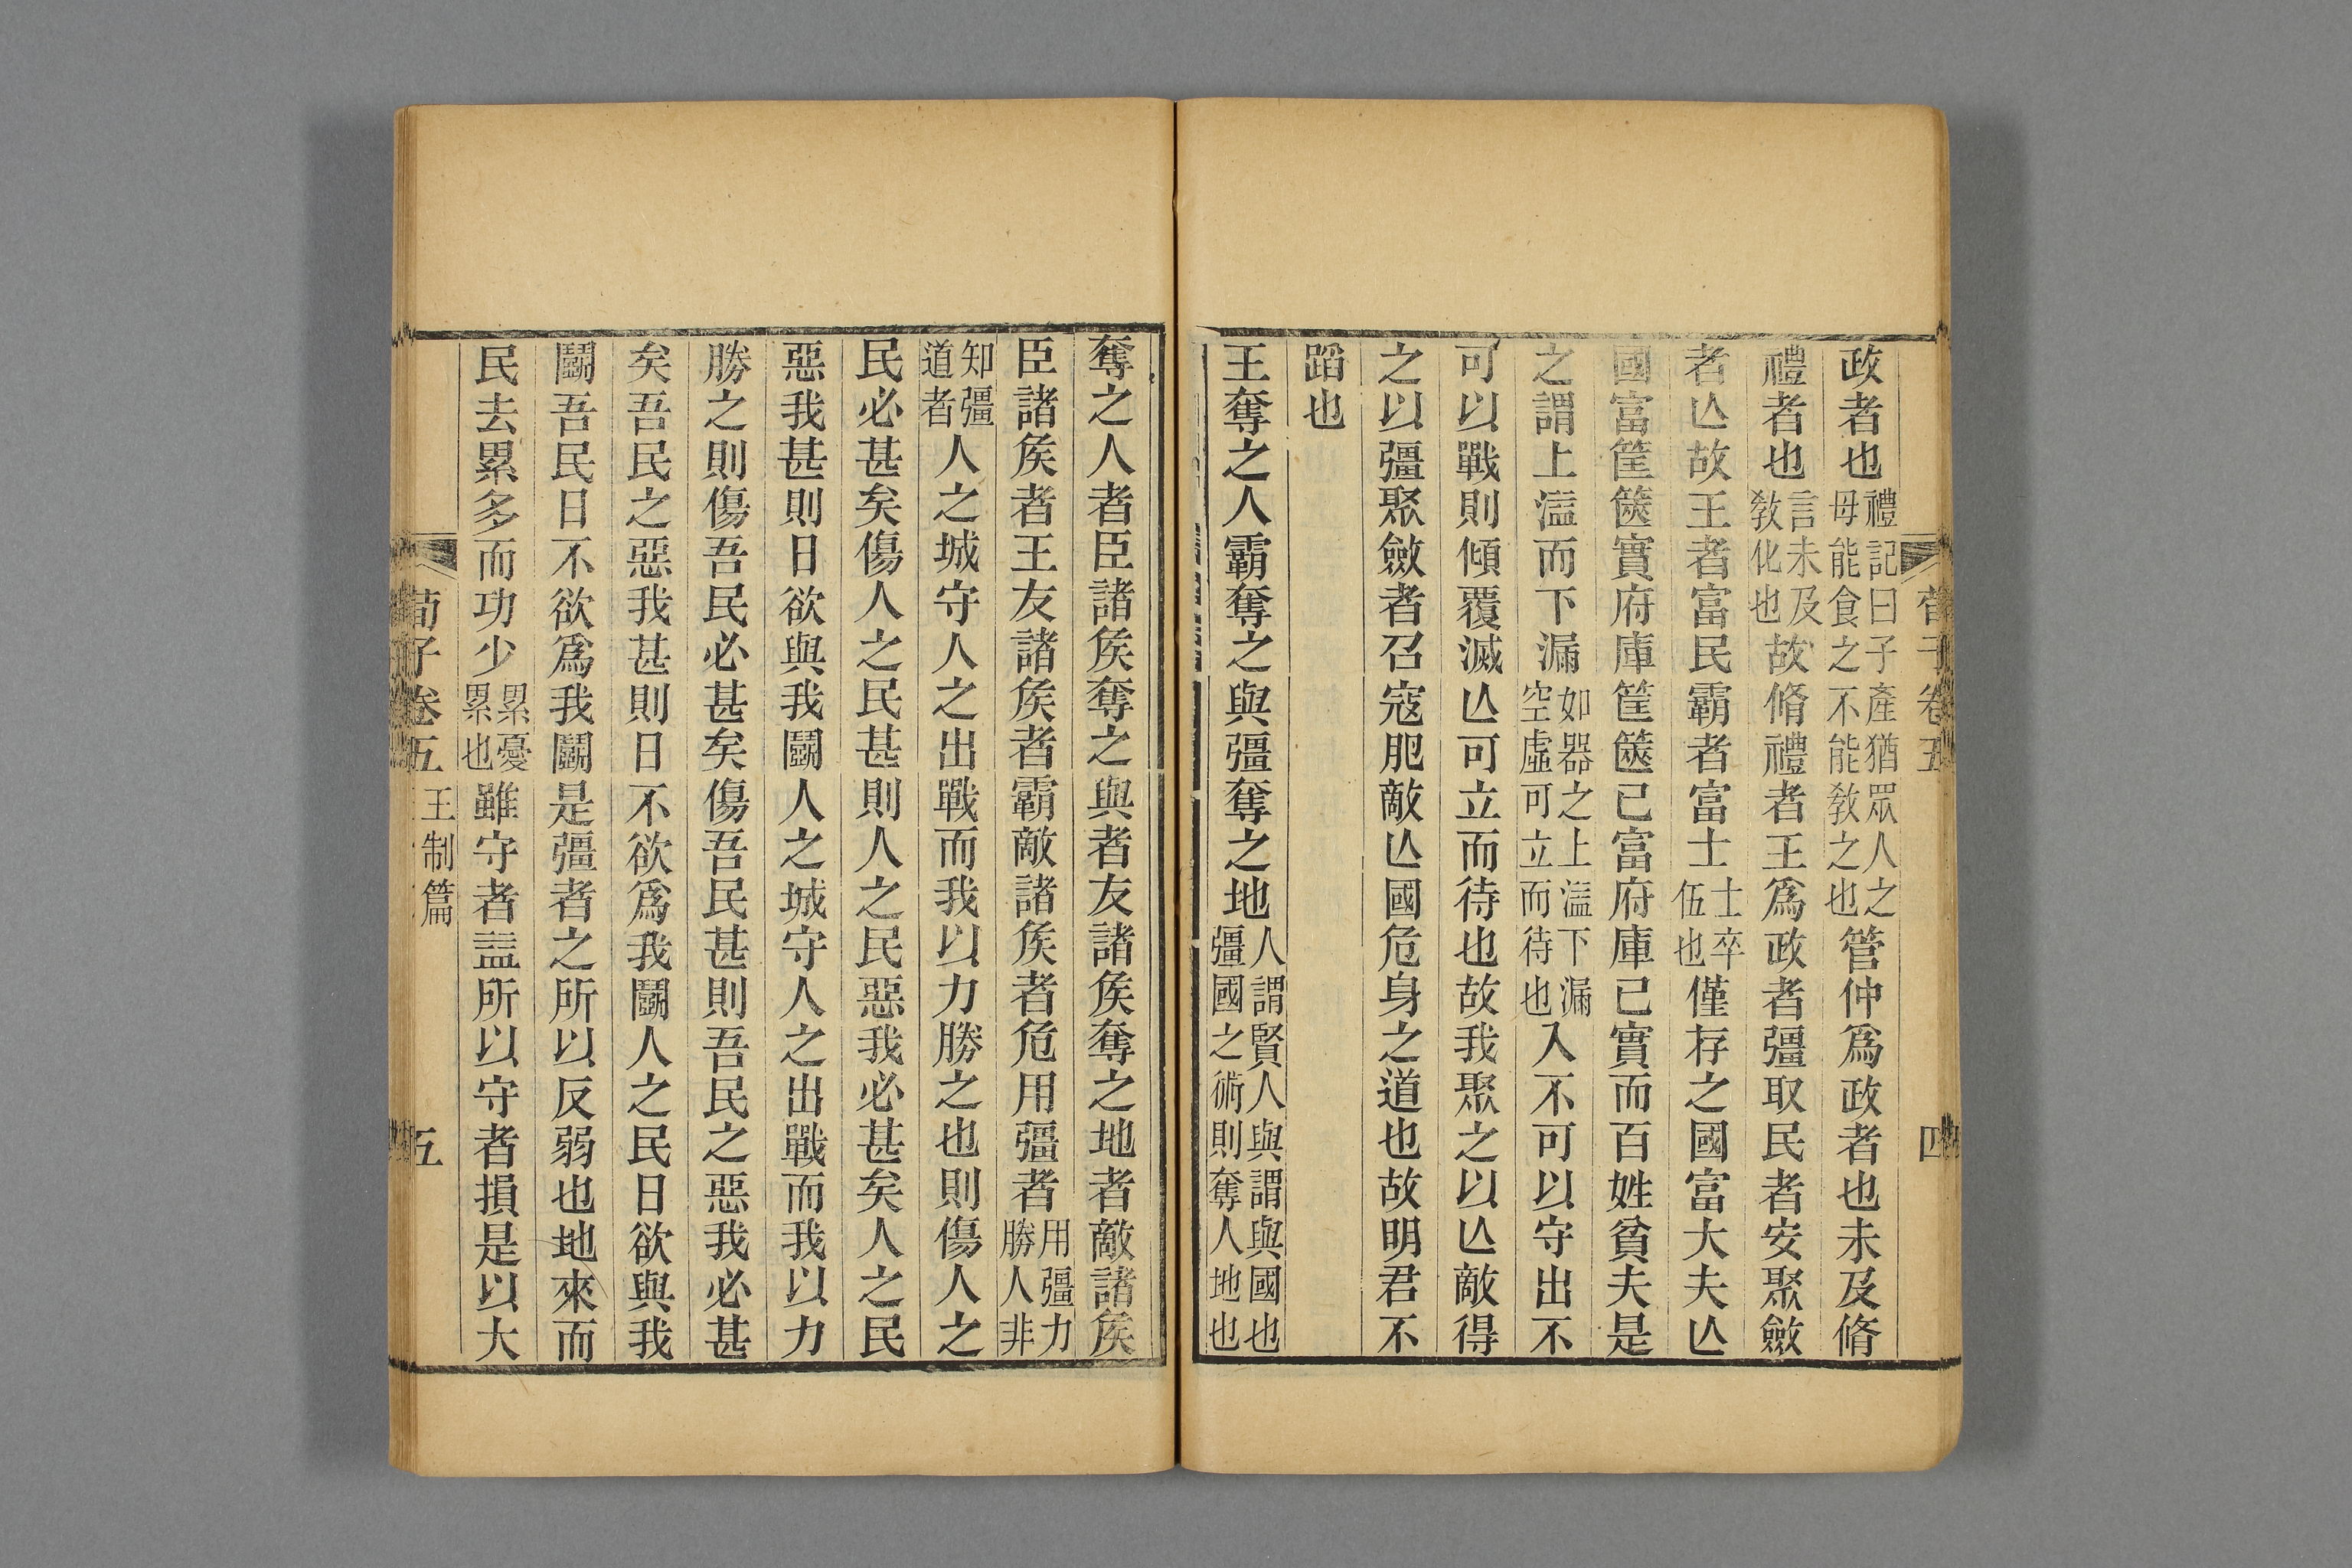 荀子卷五
四
政者也禮記曰子產猶眾人之母能食之不能敎之也管仲爲政者也未及脩
禮者也言未及敎化也故脩禮者王爲政者彊取民者安聚斂
者亾故王者富民霸者富士士卒伍也僅存之國富大夫亾
國富筐篋實府庫筐篋已富府庫已實而百姓貧夫是
之謂上溢而下漏如器之上溢下漏空虛可立而待也入不可以守出不
可以戰則傾覆滅亾可立而待也故我聚之以亾敵得
之以彊聚斂者召寇肥敵亾國危身之道也故明君不
蹈也
王奪之人霸奪之與彊奪之地人謂賢人與謂與國也彊國之術則奪人地也
奪之人者臣諸矦奪之與者友諸矦奪之地者敵諸矦
臣諸矦者王友諸矦者霸敵諸矦者危用彊者用彊力勝人非
知彊道者人之城守人之出戰而我以力勝之也則傷人之
民必甚矣傷人之民甚則人之民惡我必甚矣人之民
惡我甚則日欲與我鬭人之城守人之出戰而我以力
勝之則傷吾民必甚矣傷吾民甚則吾民之惡我必甚
矣吾民之惡我甚則日不欲爲我鬭人之民日欲與我
鬭吾民日不欲爲我鬭是彊者之所以反弱也地來而
民去累多而功少累憂累也雖守者益所以守者損是以大
荀子卷五
王制篇
五